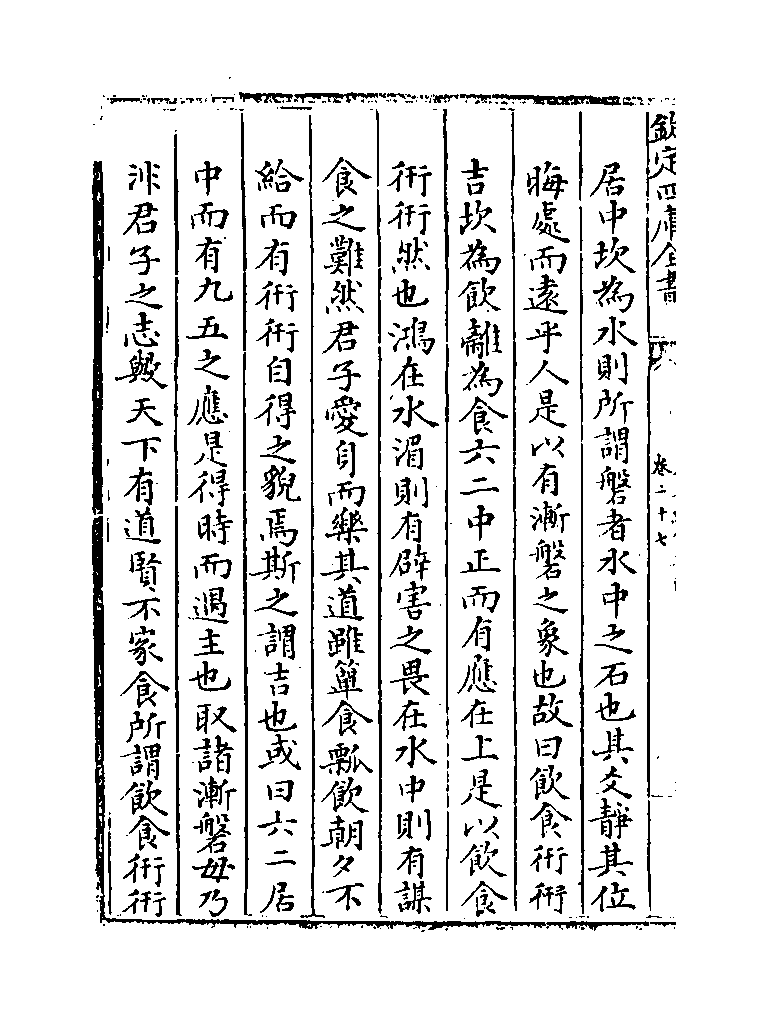 欽定四庫全書
卷二十七
居中坎為水則所謂磐者水中之石也其爻靜其位
晦處而遠乎人是以有漸磐之象也故曰飲食衎衎
吉坎為飲離為食六二中正而有應在上是以飲食
衎衎然也鴻在水湄則有辟害之畏在水中則有謀
食之難然君子愛身而樂其道雖簞食瓢飲朝夕不
給而有衎衎自得之貌焉斯之謂吉也或曰六二居
中而有九五之應是得時而遇主也取諸漸磐毋乃
非君子之志與天下有道賢不家食所謂飲食衎衎